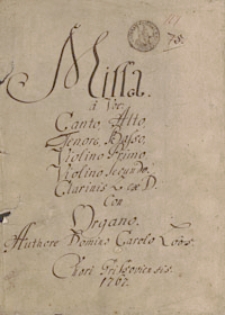 75.
Missa.
á Voc:
Canto, Alto,
Tenore, Basso,
Violino Primo,
Violino Secundo,
Clarinis 2 ex D.
Con
Organo.
Authore Domino Carolo
Chori
1767.